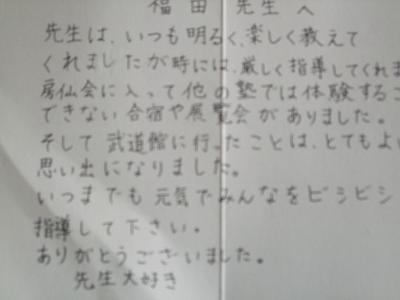 福田先生へ
先生は、いつも明るく、楽しく教えて
くれましたが時には、厳しく指導してくれま
房仙会に入って他の塾では体験するこ
できない合宿や展覧会がありました。
そして武道館に行ったことは、とてもよい
思い出になりました。
いつまでも元気でみんなをビシビシ
指導して下さい。
ありがとうございました。
先生大好き